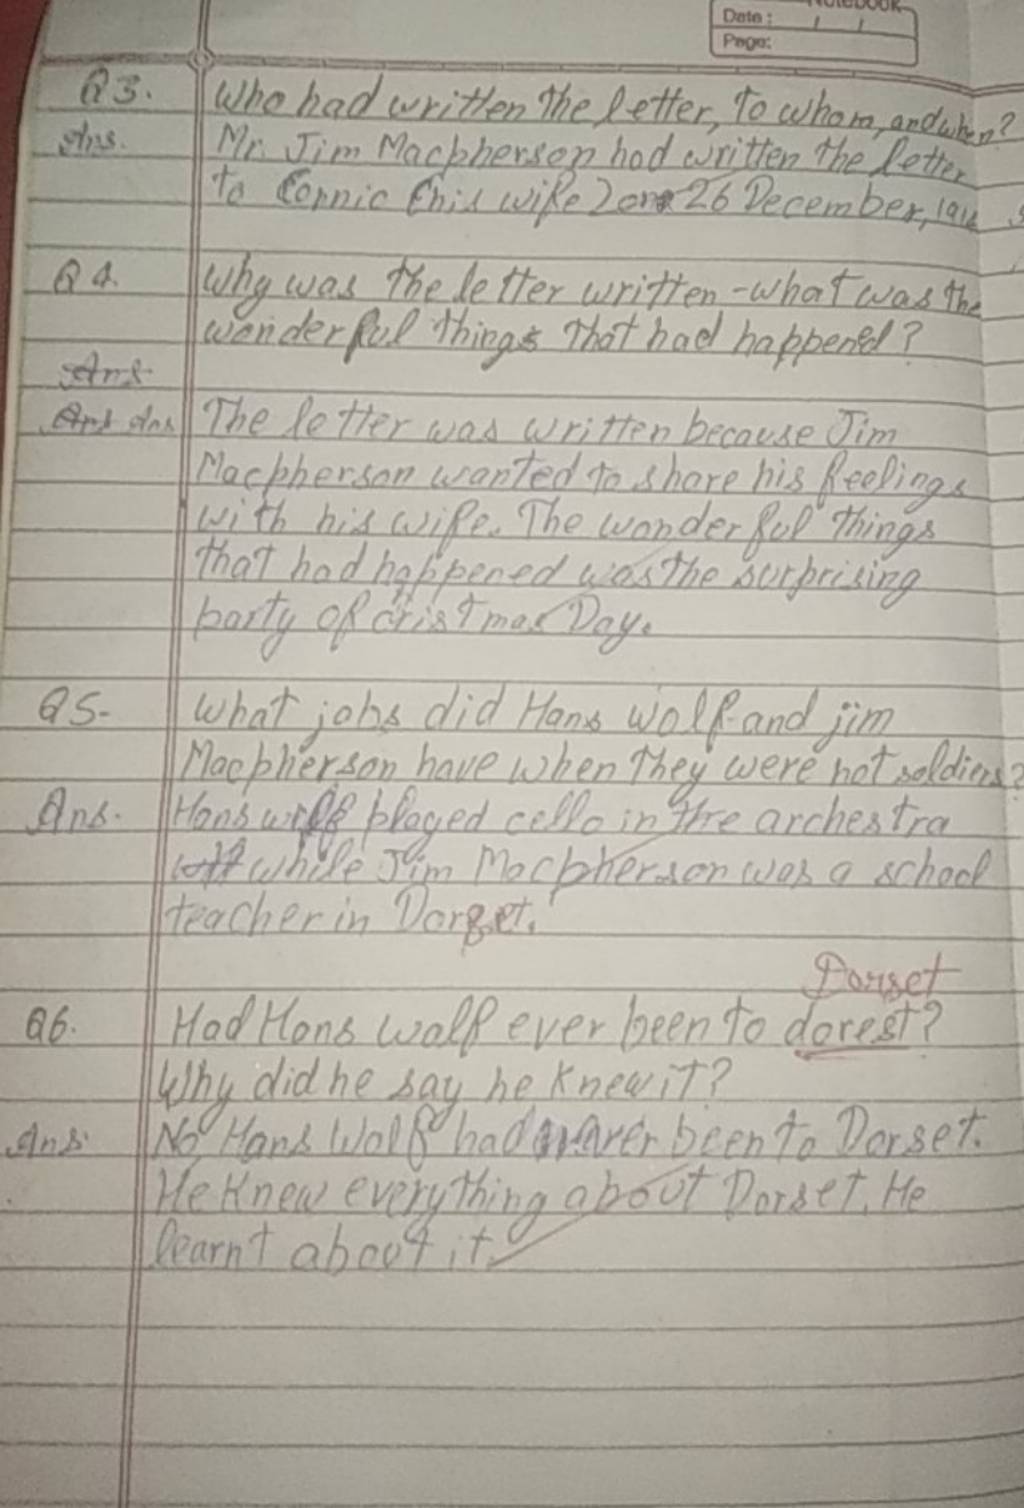 Notebook
Date: / /
Page:
Q3. Who had written the letter, to whom, and when?
Ans. Mr. Jim Macpherson had written the letter
to Connie (his wife) on 26 December, 191
Q4. Why was the letter written - what was the
wonderful things that had happened?
Ans
Ans The letter was written because Jim
Macpherson wanted to share his feelings
with his wife. The wonderful things
that had happened was the surprising
party of cristmas Day.
Q5- What jobs did Hans Wolf and jim
Macpherson have when they were not soldiers?
Ans. Hans wolf played cello in the archestra
while Jim Macpherson was a school
teacher in Dorset.
Dorset
Q6. Had Hans wolf ever been to dorest?
Why did he say he knew it?
Ans No Hans Wolf had never been to Dorset.
He knew everything about Dorset. He
learnt about it.